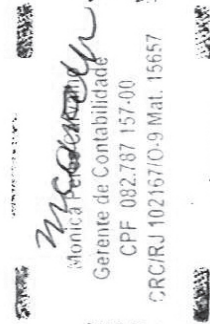 Monica
Gerente de Contabilidade
CPF 082.787 157-00
CRC/RJ 102167/O-9 Mat. 15657